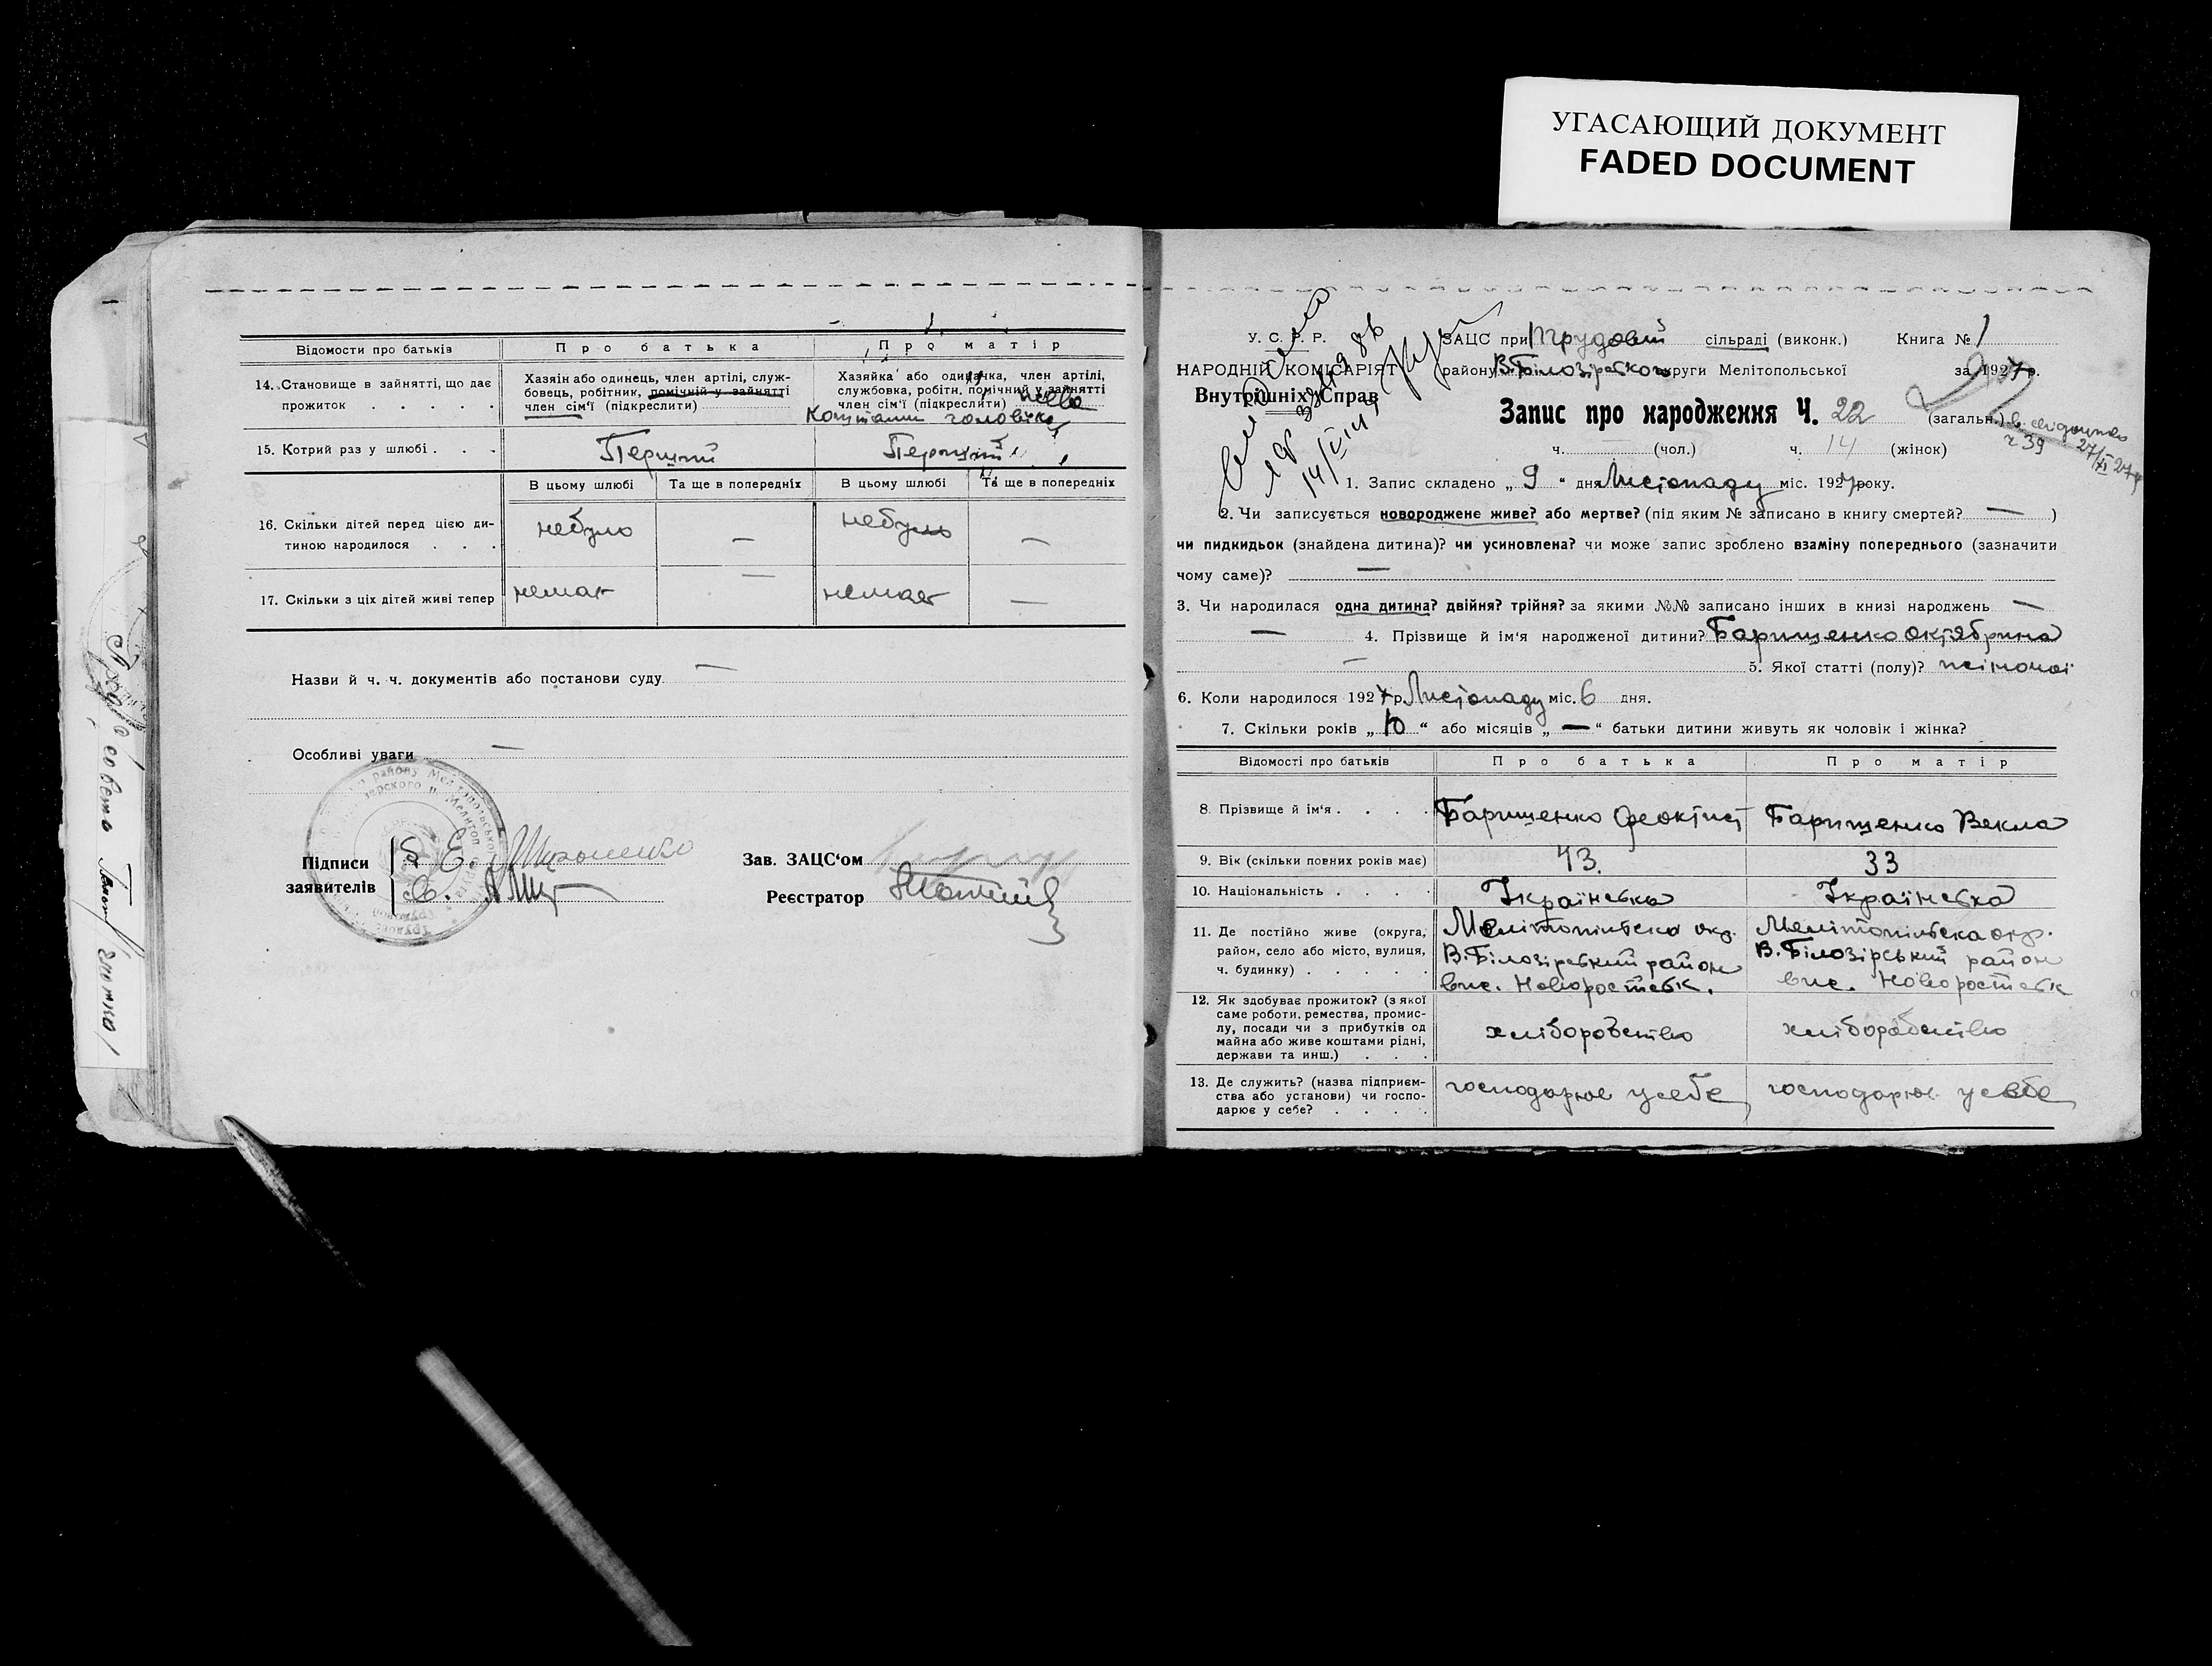 УГАСАЮЩИЙ ДОКУМЕНТ
FADED DOCUMENT
Відомости про батьків
Про батька
Про матір
14. Становище в зайнятті, що дає прожиток
Хазяін або одинець, член артілі, служ-
бовець, робітник, помічній у зайнятті
член сім'ї (підкреслити)
Хазяйка або одиначка, член артілі,
службовка, робітн. помічний у зайнятті
член сім'ї (підкреслити) живе
коштами чоловіка
15. Котрий раз у шлюбі
Перший
Перший
В цьому шлюбі
Та ще в попередніх
В цьому шлюбі
Та ще в попередніх
16. Скільки дітей перед цією ди-
тиною народилося
небуло
—
небуло
—
17. Скільки з ціх дітей живі тепер
немає
—
немает
—
Назви й ч. ч. документів або постанови суду —
Особливі уваги —
Підписи
заявителів
Зав. ЗАЦС'ом
Реєстратор
У. С. Р. Р.
НАРОДНІЙ КОМІСАРІЯТ
Внутрішніх Справ
ЗАЦС при Трудовій сільраді (виконк.)
Книга № 1
району В.Білозірського округи Мелітопольської
за 1927 р.
Запис про народження Ч. 22 (загальн.)
ч. 39
27/XI 27р
ч. (чол.) ч. 14 (жінок)
14/VIII
1. Запис складено „ 9 “ дня Листопаду міс. 1927 року.
2. Чи записується новороджене живе? або мертве? (під яким № записано в книгу смертей? — )
чи пидкидьок (знайдена дитина)? чи усиновлена? чи може запис зроблено взаміну попереднього (зазначити
чому саме)? —
3. Чи народилася одна дитина? двійня? трійня? за якими №№ записано інших в книзі народжень —
— 4. Прізвище й ім'я народженої дитини? Барищенко Октябрина
— 5. Якої статті (полу)? жіночої
6. Коли народилося 1927 р. Листопаду міс. 6 дня.
7. Скільки років „ 10 “ або місяців „ — “ батьки дитини живуть як чоловік і жінка?
Відомості про батьків
Про батька
Про матір
8. Прізвище й ім'я
Барищенко Феоктист
Барищенко Векла
9. Вік (скільки повних років має)
43.
33
10. Національність
Українська
Українська
11. Де постійно живе (округа,
район, село або місто, вулиця,
ч. будинку)
Мелітопільска окр.
В.Білозірський район
вис. Новоростовк.
Мелітопільска окр.
В.Білозірський район
вис. Новоростовк
12. Як здобуває прожиток? (з якої
саме роботи, ремества, промис-
лу, посади чи з прибутків од
майна або живе коштами рідні,
держави та инш.)
хліборобство
хліборобство
13. Де служить? (назва підприєм-
ства або установи) чи госпо-
дарює у себе?
господарює у себе
господарює у себе